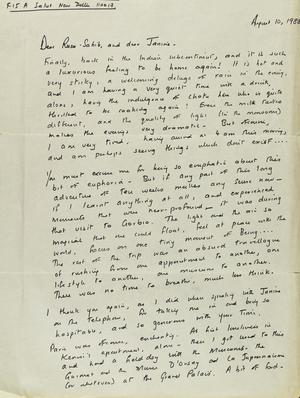 F-15 A Saket New Delhi 110017
August 10, 198
Dear Raza-Sahib, and dear Janine -
Finally, back in the Indian subcontinent, and it is such
a luxurious feeling to be home again! It is hot and
very sticky, a welcoming deluge of rain in the evening,
and I am having a very quiet time with a drink
alone, having the indulgence of who is quite
thrilled to be cooking again! Even the milk tastes
different and the quality of light (in the monsoon)
makes the evenings very dramatic. But of course,
I am very tired, having arrived at 4 am this morning,
and am perhaps seeing things which don't exist....
You must excuse me for being so emphatic about this
bit of euphoria. But if any part of this long
adventure of ten weeks makes any sense now -
if I learnt anything at all, and experienced
moments that were near-profound - it was during
that visit to Gorbio. The light and the air so
magical that one could float, feel at peace with the
world, focus on one tiny moment of Being...
The rest of the trip was an absurd travelogue
of rushing from one appointment to another, one
lifestyle to another, one museum to another.
There was no time to breathe, much less think.
I thank you again, as I did when speaking with Janine
on the telephone, for taking me in and being so
hospitable, and so generous with your time.
Paris was, of course, enchanting. At first loneliness in
apartment, alone - then I got used to this
and had a field day with the Museums - the
Guimet and the Musee D'Orsay and La
(or whatever) at the Grand Palais. A bit of